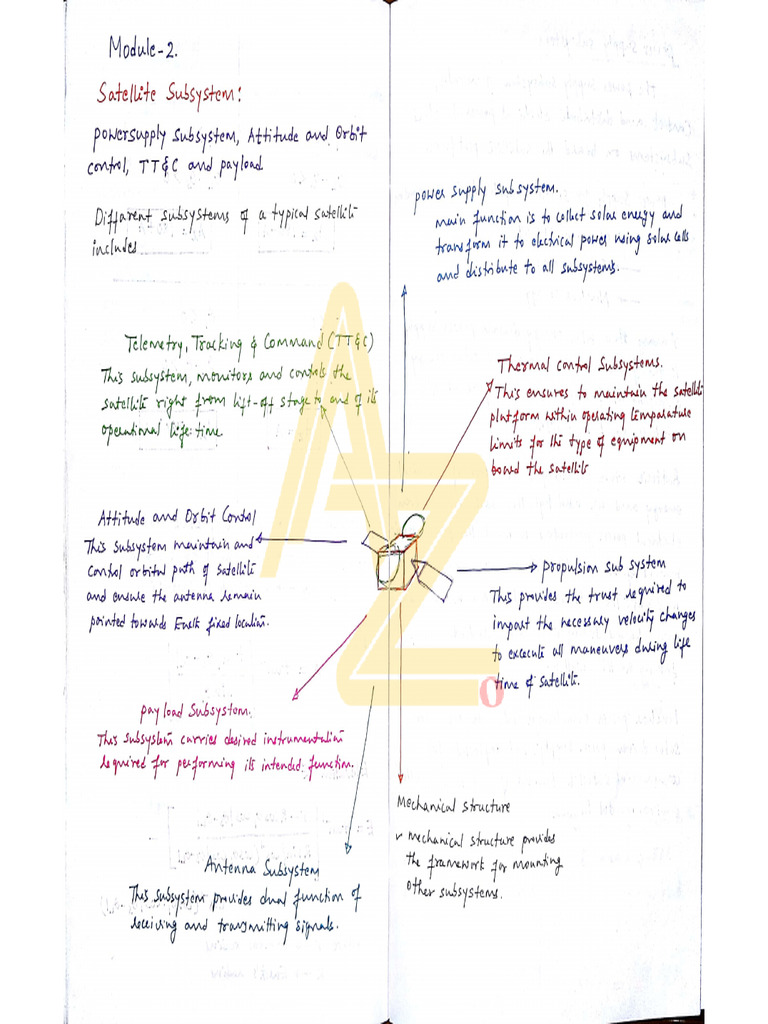 Module-2.
Satellite Subsystem:
powersupply subsystem, Attitude and Orbit
control, TT&C and payload
Different subsystems of a typical satellite
includes
Telemetry, Tracking & Command (TT&C)
This subsystem, monitors and controls the
satellite right from lift-off stage to end of its
operational life: time
Attitude and Orbit Control
This subsystem maintain and
control orbital path of satellite
and ensure the antenna remain
pointed towards Earth fixed location.
payload Subsystem.
This subsystem carries desired instrumentation
required for performing its intended function.
Antenna Subsystem
This subsystem provides dual function of
receiving and transmitting signals.
power supply subsystem.
main function is to collect solar energy and
transform it to electrical power using solar cells
and distribute to all subsystems.
Thermal control Subsystems.
This ensures to maintain the satellite
platform within operating temparature
limits for the type of equipment on
board the satellite
propulsion sub system
This provides the trust required to
impart the necessary velocity changes
to excecute all maneuvers during life
time of satellite.
Mechanical structure
✓ mechanical structure provides
the framework for mounting
other subsystems.
AZO